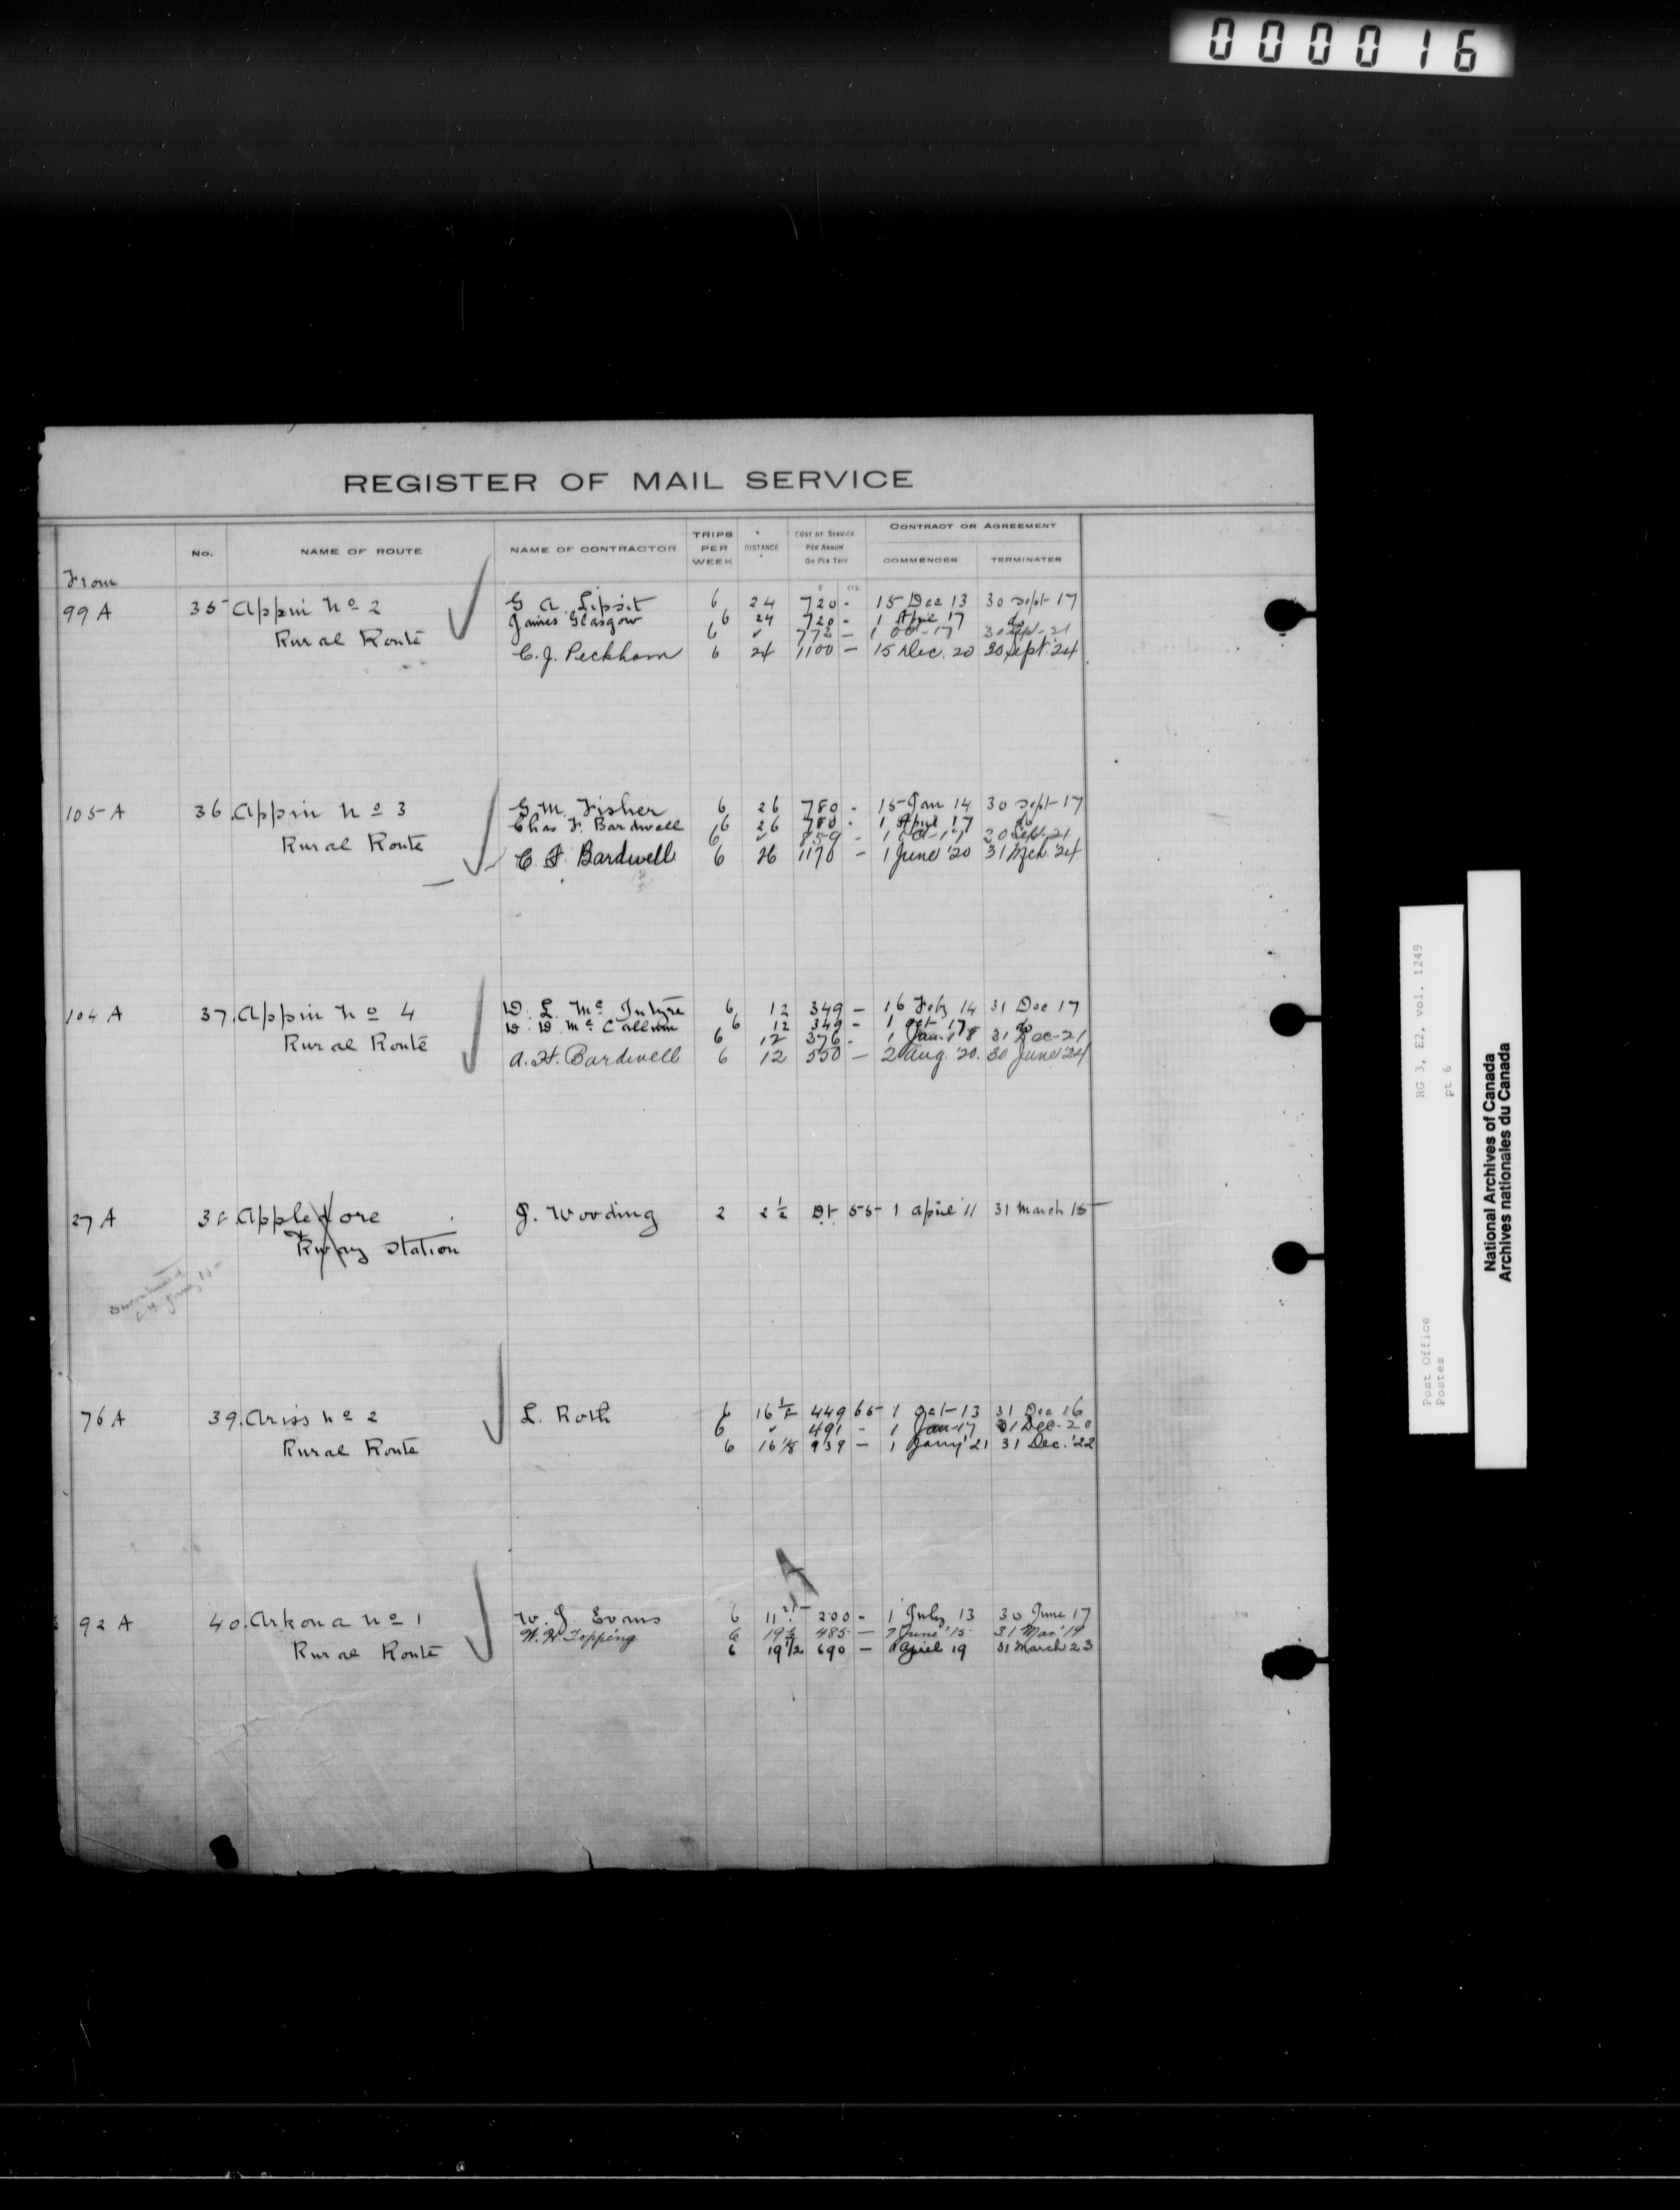 000016
REGISTER OF MAIL SERVICE
From
No.
NAME OF ROUTE
NAME OF CONTRACTOR
TRIPS PER WEEK
DISTANCE
COST OF SERVICE PER ANNUM OR PER TRIP
$ CTS.
CONTRACT OR AGREEMENT
COMMENCES
TERMINATES
99 A 35 Appin No 2 G A. Lipsit 6 24 720 - 15 Dec 13 30 Sept 17
James Glasgow 6 24 720 - 1 April 17 do
Rural Route 6 ✓ 772 - 1 Oct-17 30 Sept-21
C. J. Peckham 6 24 1100 - 15 Dec. 20 30 Sept '24
105 A 36. Appin No 3 G. M. Fisher 6 26 780 - 15 Jan 14 30 Sept-17
Chas F. Bardwell 6 26 780 - 1 April 17 do
Rural Route 6 ✓ 859 - 1 Oct-17 30 Sept-21
C. F. Bardwell 6 26 1170 - 1 June '20 31 Mch '24
104 A 37. Appin No 4 D. L. Mc Intyre 6 12 349 - 16 Feby 14 31 Dec 17
D. D. Mc Callum 6 12 349 - 1 Oct 17 do
Rural Route 6 12 376 - 1 Jan-18 31 Dec-21
A. H. Bardwell 6 12 550 - 2 Aug. '20. 30 June '24
27 A 38. Appledore J. Wooding 2 2 1/2 Dt 55 1 April 11 31 March 15
& Rwray Station
76 A 39. Ariss No 2 L. Roth 6 16 1/2 449 65 1 Oct-13 31 Dec 16
6 ✓ 491 - 1 Jan-17 31 Dec-20
Rural Route 6 16 1/8 939 - 1 Janry '21 31 Dec. '22
A
92 A 40. Arkona No 1 W. J. Evans 6 11 200 - 1 July 13 30 June 17
W. H. Topping 6 19 1/2 485 - 7 June '15 31 Mar '19
Rural Route 6 19 1/2 690 - 1 April 19 31 March 23
RG 3, E2, vol. 1249
pt 6
Post Office
Postes
National Archives of Canada
Archives nationales du Canada